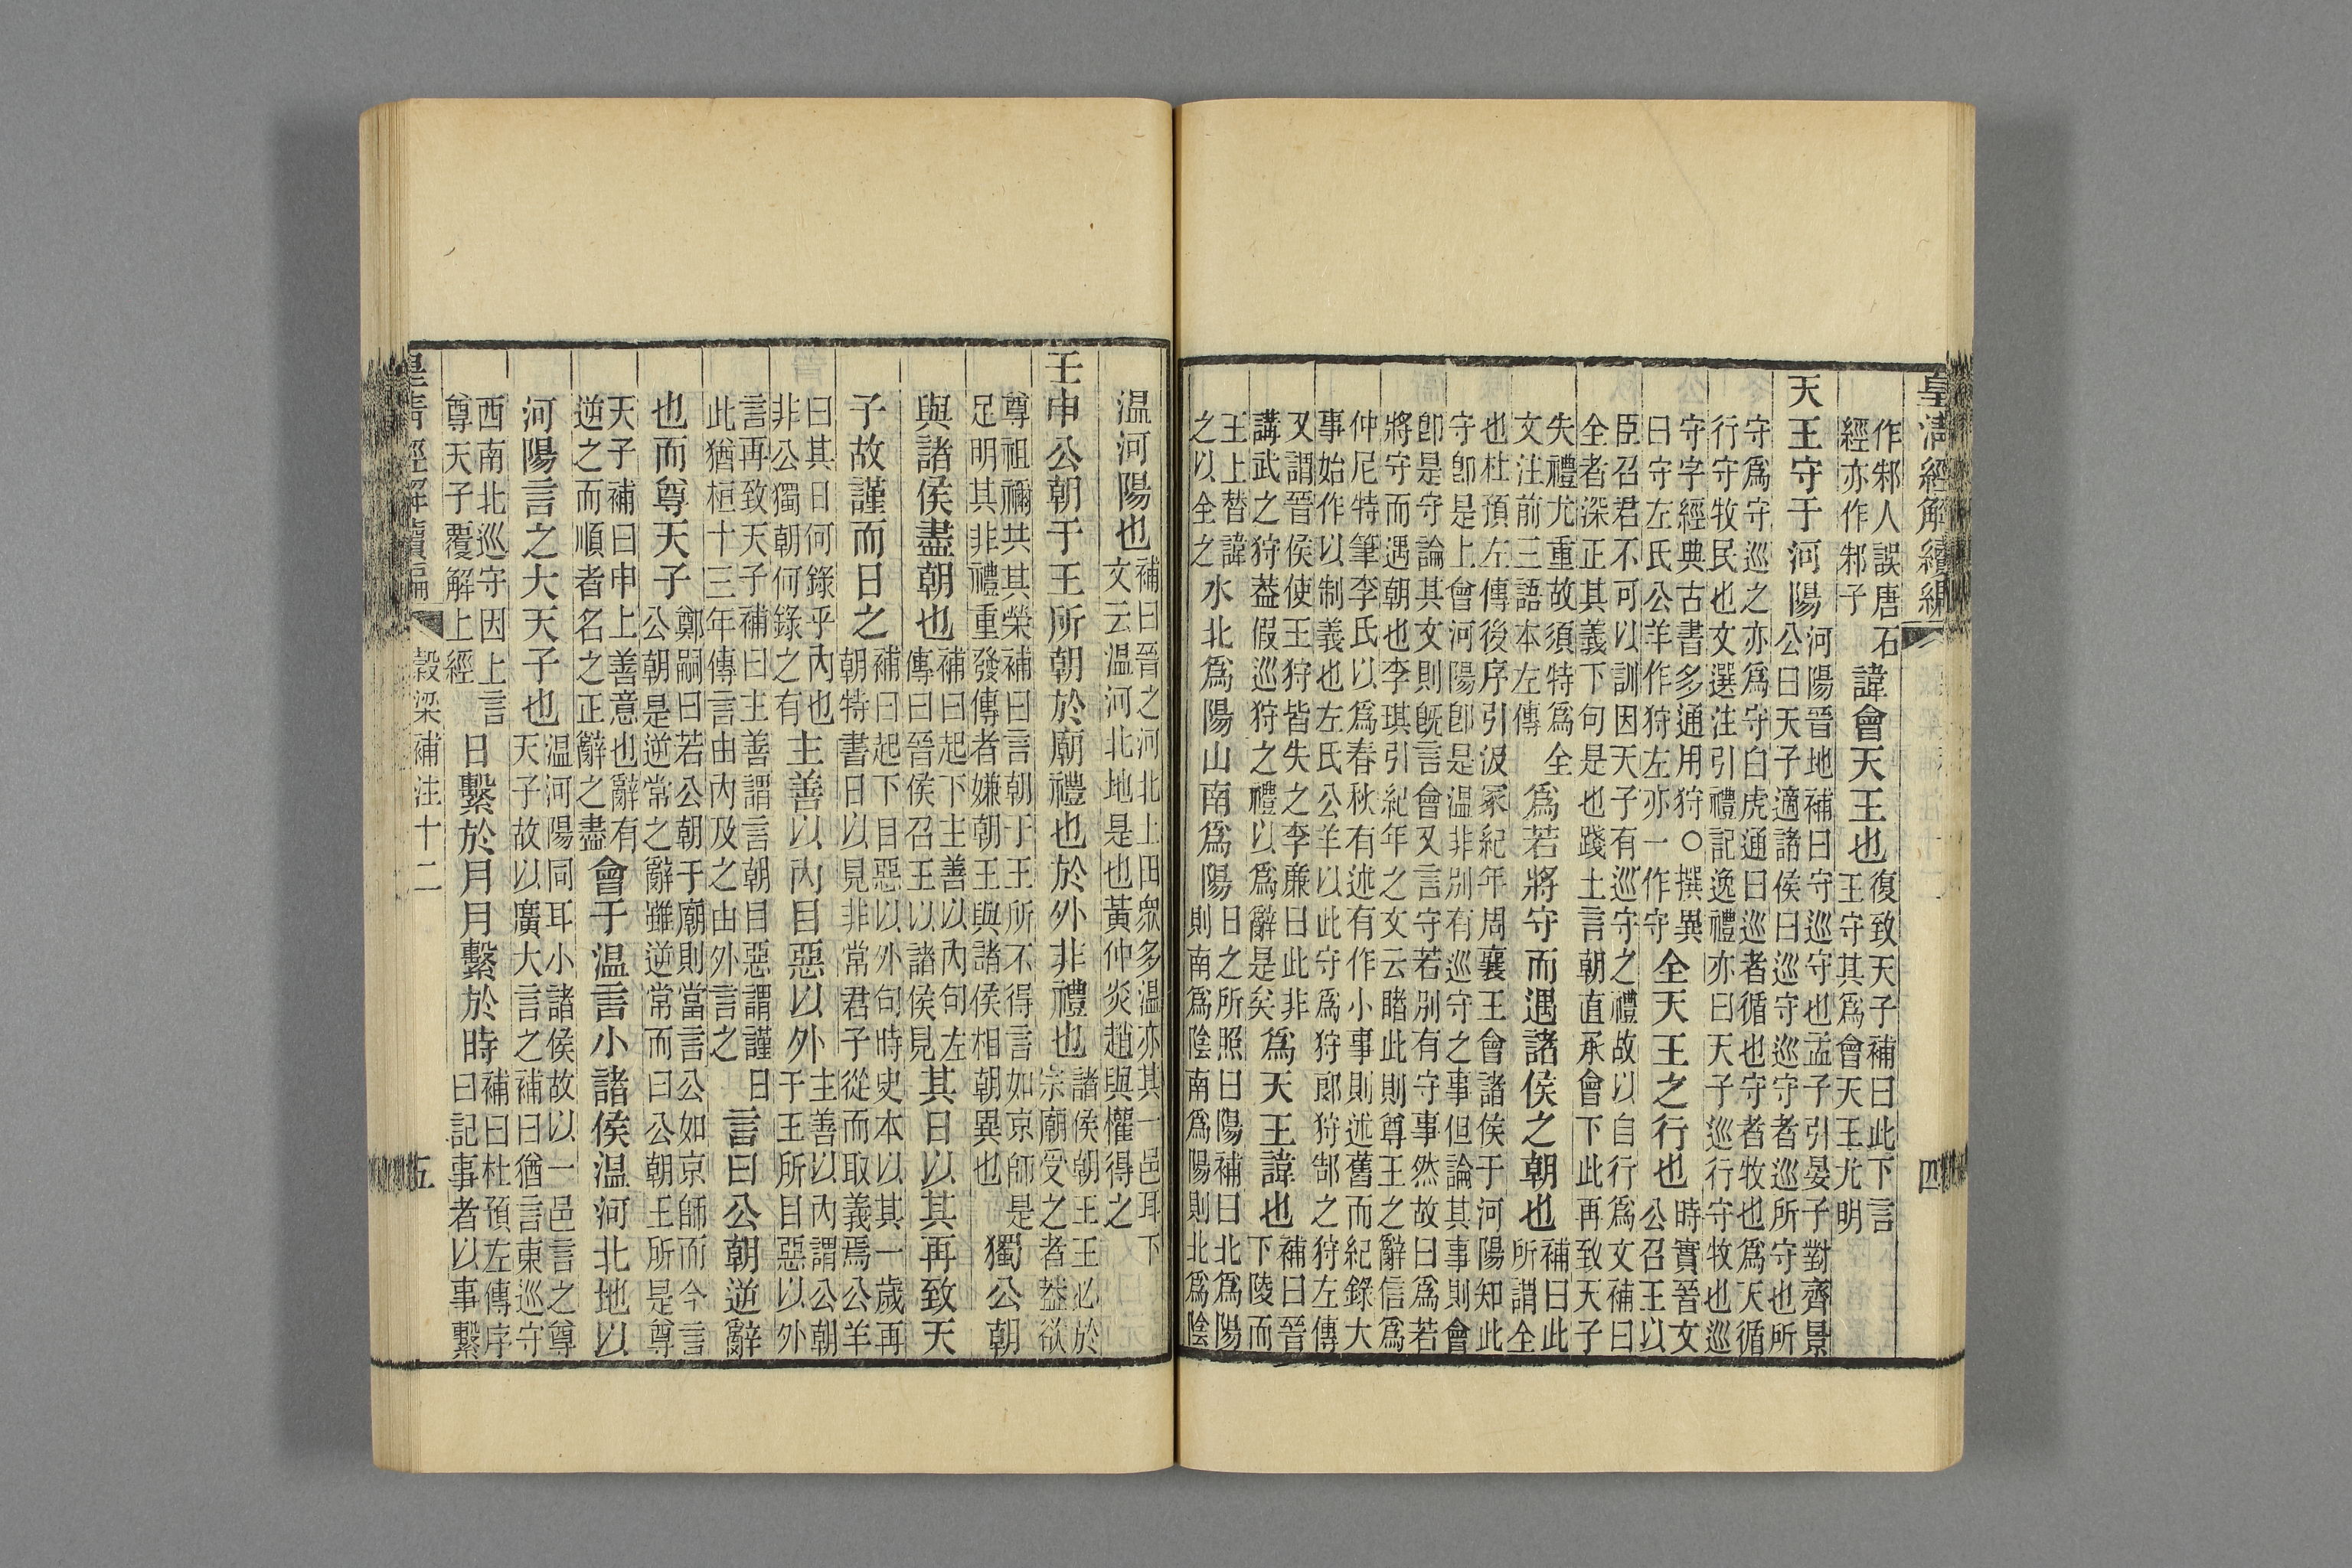 皇清經解續編 四
作邾人誤唐石
經亦作邾子
諱會天王也
復致天子補曰此下言
王守其爲會天王尤明
天王守于河陽
河陽晉地補曰守巡守也孟子引晏子對齊景
公曰天子適諸侯曰巡守巡守者巡所守也所
守爲守巡之亦爲守白虎通曰巡者循也守者牧也爲天循
行守牧民也文選注引禮記逸禮亦曰天子巡行守牧也巡
守字經典古書多通用狩○撰異
曰守左氏公羊作狩左亦一作守
全天王之行也
時實晉文
公召王以
臣召君不可以訓因天子有巡守之禮故以自行爲文補曰
全者深正其義下句是也踐土言朝直承會下此再致天子
失禮尤重故須特爲全
文注前三語本左傳
爲若將守而遇諸侯之朝也
補曰此
所謂全
也杜預左傳後序引汲冢紀年周襄王會諸侯于河陽知此
守卽是上會河陽卽是温非別有巡守之事但論其事則會
卽是守論其文則旣言會又言守若別有守事然故曰爲若
將守而遇朝也李琪引紀年之文云睹此則尊王之辭信爲
仲尼特筆李氏以爲春秋有述有作小事則述舊而紀錄大
事始作以制義也左氏公羊以此守爲狩郎狩郜之狩左傳
又謂晉侯使王狩皆失之李廉曰此非
講武之狩葢假巡狩之禮以爲辭是矣
爲天王諱也
補曰晉
下陵而
王上替諱
之以全之
水北爲陽山南爲陽
日之所照曰陽補曰北爲陽
則南爲陰南爲陽則北爲陰
温河陽也
補曰晉之河北上田衆多温亦其一邑耳下
文云温河北地是也黃仲炎趙與懽得之
壬申公朝于王所朝於廟禮也於外非禮也
諸侯朝王王必於
宗廟受之者葢欲
尊祖禰共其榮補曰言朝于王所不得言如京師是
足明其非禮重發傳者嫌朝王與諸侯相朝異也
獨公朝
與諸侯盡朝也
補曰起下主善以內句左
傳曰晉侯召王以諸侯見
其日以其再致天
子故謹而日之
補曰起下目惡以外句時史本以其一歲再
朝特書日以見非常君子從而取義焉公羊
曰其日何錄乎內也
非公獨朝何錄之有
主善以內目惡以外
主善以內謂公朝
于王所目惡以外
言再致天子補曰主善謂言朝目惡謂謹日
此猶桓十三年傳言由內及之由外言之
言曰公朝逆辭
也而尊天子
鄭嗣曰若公朝于廟則當言公如京師而今言
公朝是逆常之辭雖逆常而曰公朝王所是尊
天子補曰申上善意也辭有
逆之而順者名之正辭之盡
會于温言小諸侯温河北地以
河陽言之大天子也
温河陽同耳小諸侯故以一邑言之尊
天子故以廣大言之補曰猶言東巡守
西南北巡守因上言
尊天子覆解上經
日繫於月月繫於時
補曰杜預左傳序
曰記事者以事繫
皇清經解續編 穀梁補注十二 五